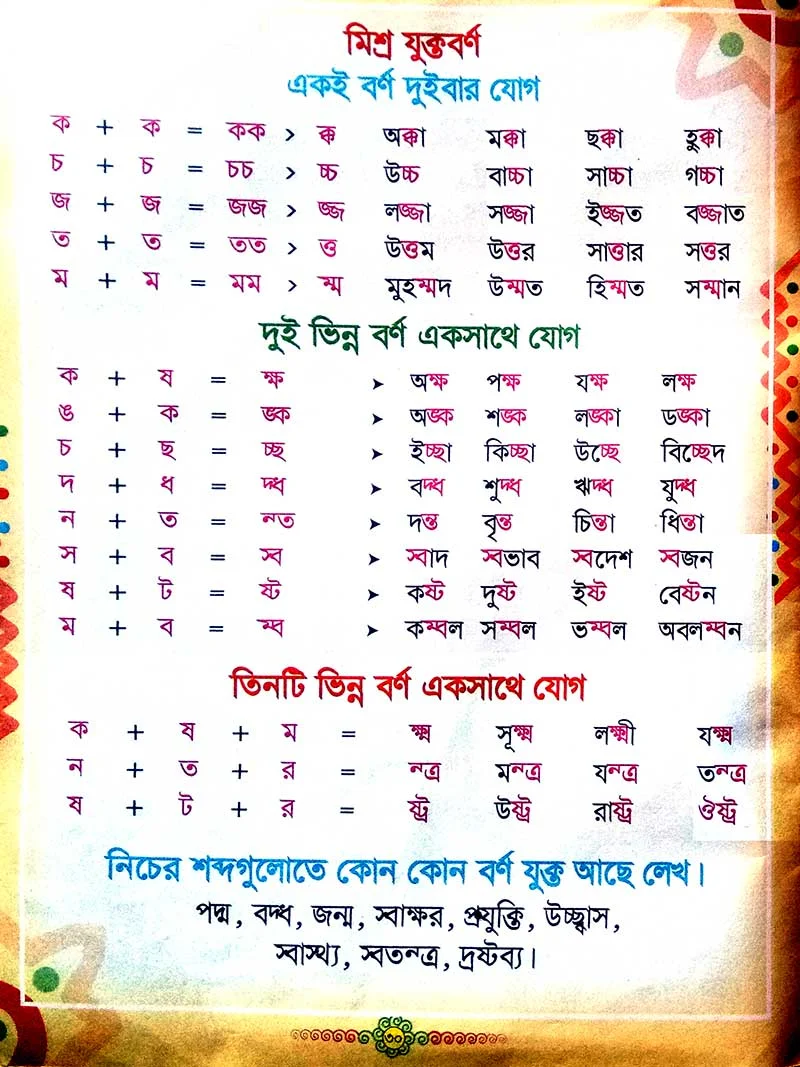 মিশ্র যুক্তবর্ণ
একই বর্ণ দুইবার যোগ
ক + ক = কক > ক্ক অক্কা মক্কা ছক্কা হুক্কা
চ + চ = চচ > চ্চ উচ্চ বাচ্চা সাচ্চা গচ্চা
জ + জ = জজ > জ্জ লজ্জা সজ্জা ইজ্জত বজ্জাত
ত + ত = তত > ত্ত উত্তম উত্তর সাত্তার সত্তর
ম + ম = মম > ম্ম মুহম্মদ উম্মত হিম্মত সম্মান
দুই ভিন্ন বর্ণ একসাথে যোগ
ক + ষ = ক্ষ ➤ অক্ষ পক্ষ যক্ষ লক্ষ
ঙ + ক = ঙ্ক ➤ অঙ্ক শঙ্ক লঙ্কা ডঙ্কা
চ + ছ = চ্ছ ➤ ইচ্ছা কিচ্ছা উচ্ছে বিচ্ছেদ
দ + ধ = দ্ধ ➤ বদ্ধ শুদ্ধ ঋদ্ধ যুদ্ধ
ন + ত = ন্ত ➤ দন্ত বৃন্ত চিন্তা ধিন্তা
স + ব = স্ব ➤ স্বাদ স্বভাব স্বদেশ স্বজন
ষ + ট = ষ্ট ➤ কষ্ট দুষ্ট ইষ্ট বেষ্টন
ম + ব = ম্ব ➤ কম্বল সম্বল ভম্বল অবলম্বন
তিনটি ভিন্ন বর্ণ একসাথে যোগ
ক + ষ + ম = ক্ষ্ম সূক্ষ্ম লক্ষ্মী যক্ষ্ম
ন + ত + র = ন্ত্র মন্ত্র যন্ত্র তন্ত্র
ষ + ট + র = ষ্ট্র উষ্ট্র রাষ্ট্র ঔষ্ট্র
নিচের শব্দগুলোতে কোন কোন বর্ণ যুক্ত আছে লেখ।
পদ্ম, বদ্ধ, জন্ম, স্বাক্ষর, প্রযুক্তি, উচ্ছ্বাস,
স্বাস্থ্য, স্বতন্ত্র, দ্রষ্টব্য।
৩০